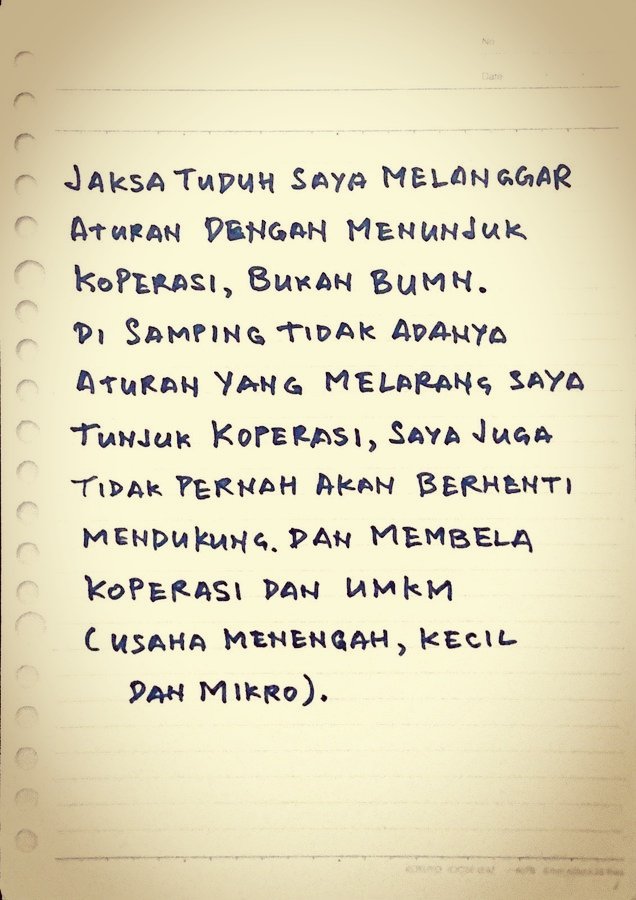 No
Date
JAKSA TUDUH SAYA MELANGGAR
ATURAN DENGAN MENUNJUK
KOPERASI, BUKAN BUMN.
DI SAMPING TIDAK ADANYA
ATURAN YANG MELARANG SAYA
TUNJUK KOPERASI, SAYA JUGA
TIDAK PERNAH AKAN BERHENTI
MENDUKUNG. DAN MEMBELA
KOPERASI DAN UMKM
(USAHA MENENGAH, KECIL
DAN MIKRO).